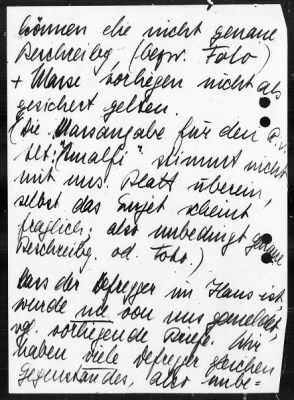 können ehe nicht genaue
Beschreibg. (bezw. Foto)
+ Masse vorliegen nicht als
gesichert gelten.
(Die Massangabe für den R. v.
Alt: "Amalfi" stimmt nicht
mit uns. Blatt überein,
selbst das Sujet scheint
fraglich; also unbedingt genaue
Beschreibg. od. Foto.)
Dass der Defregger im Haus ist
wurde nie von uns gemeldet,
vgl. vorliegende Briefe. Wir
haben viele Defregger gleichen
Gegenstandes, also unbe=